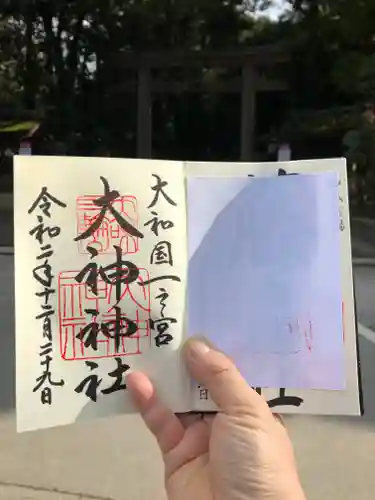 大和國一之宮
大神神社
令和二年十二月二十九日